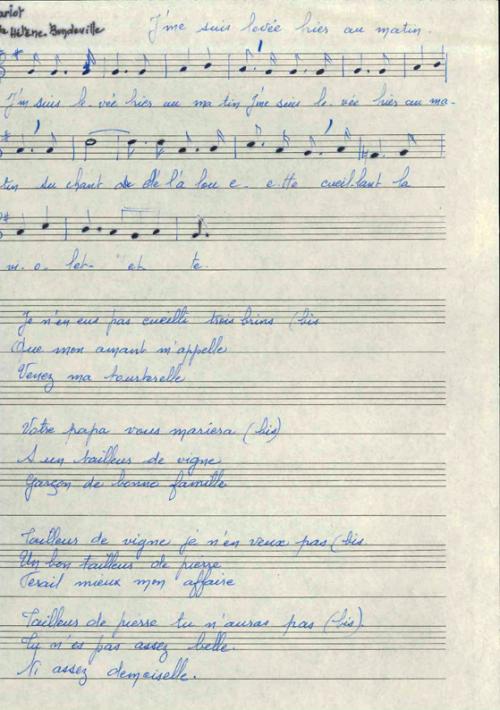 J'me suis levée hier au matin.
Hélène. Bondeville
J'm suis le. vée hier au ma tin J'me suis le. vée hier au ma-
tin Au chant de de l'a lou e. e. tte cueil. lant la
vi. o. let- et te.
Je n'en eus pas cueilli trois brins (bis
Que mon amant m'appelle
Venez ma tourterelle
Votre papa vous mariera (bis)
A un tailleur de vigne
Garçon de bonne famille
Tailleur de vigne je n'en veux pas (bis
Un bon tailleur de pierre
Ferait mieux mon affaire
Tailleur de pierre tu n'auras pas (bis).
Tu n'es pas assez belle.
Ni assez demoiselle.